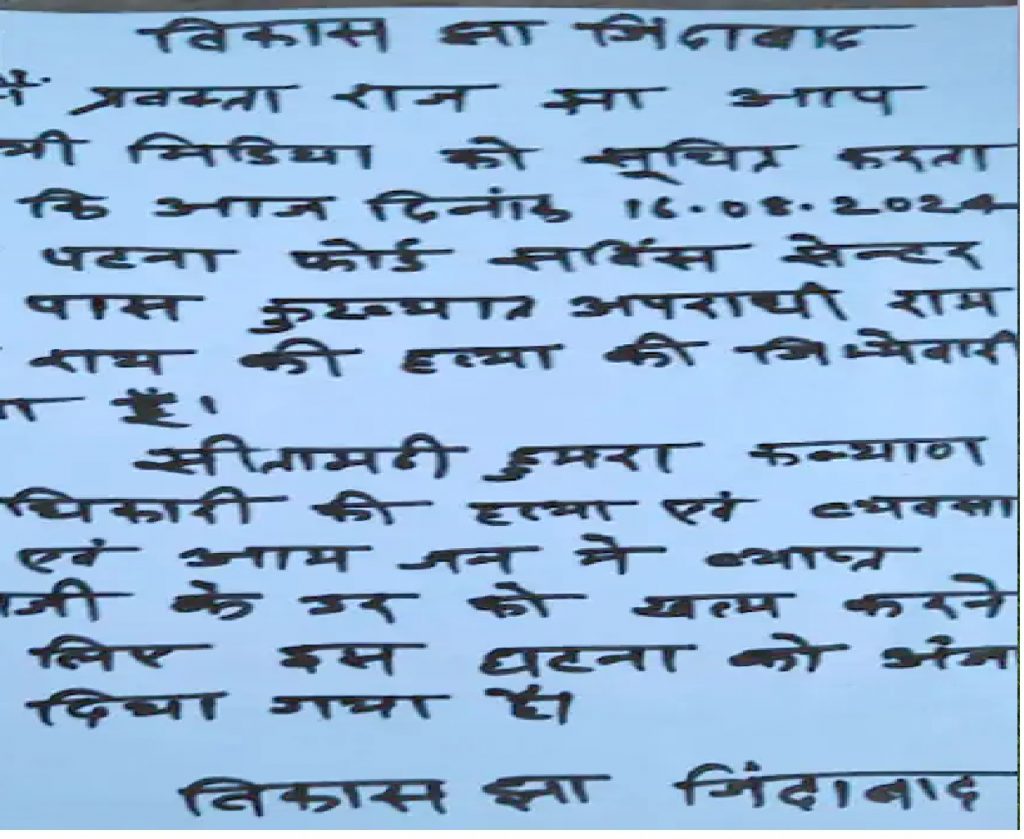 विकास झा जिंदाबाद
मैं प्रवक्ता राज झा आप
भी मिडिया को सूचित करता
कि आज दिनांक 16.08.2024
पटना फोर्ड सर्विस सेन्टर
पास कुख्यात अपराधी राम
राय की हत्या की जिम्मेवारी
है।
सीतामढी डुमरा कल्याण
धिकारी की हत्या एवं व्यवसा
एवं आम जन मे व्याप्त
जी के डर को खत्म करने
लिए इस घटना को अंज
दिया गया है।
विकास झा जिंदाबाद